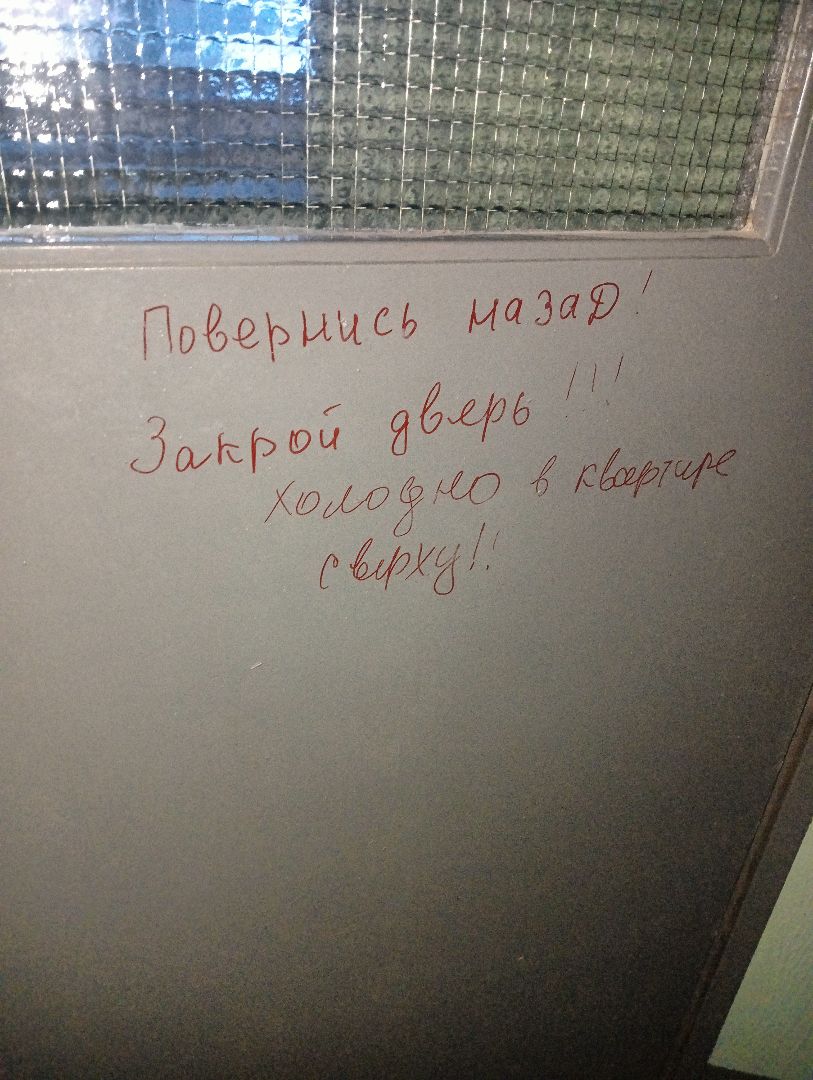 Повернись назад!
Закрой дверь!!!
холодно в квартире
сверху!!